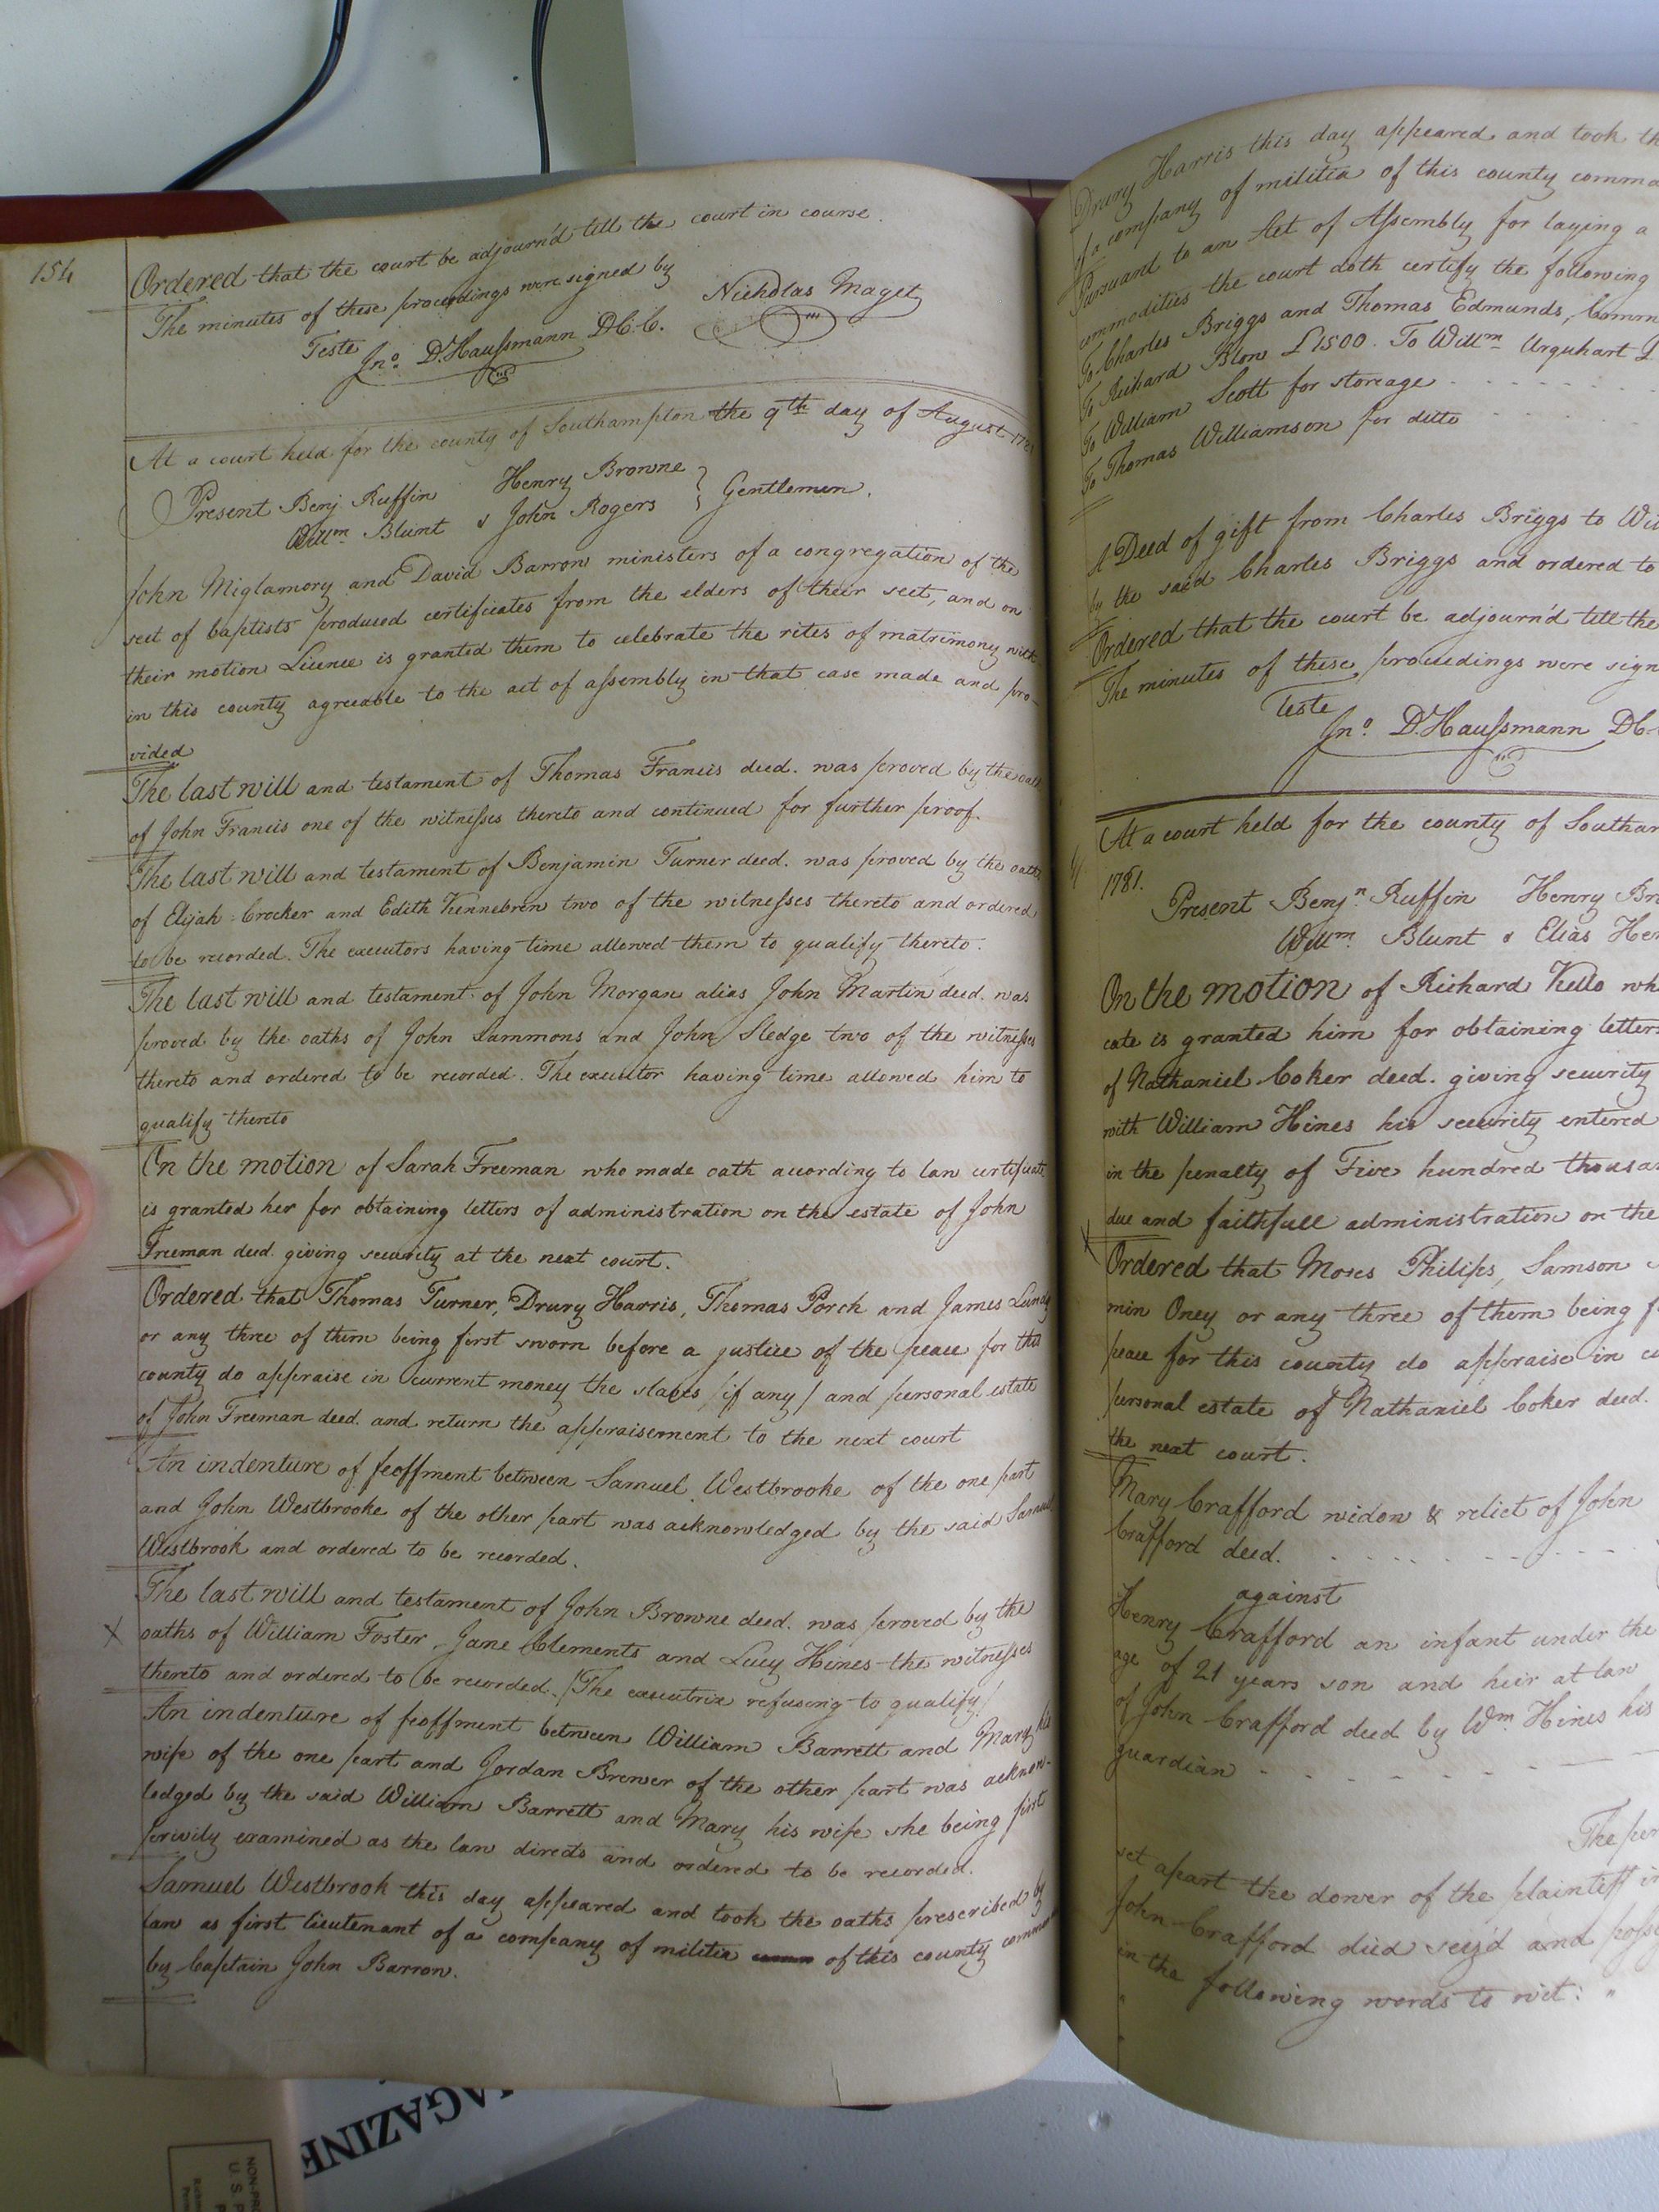 154
Ordered that the court be adjourn'd till the court in course.
The minutes of these proceedings were signed by
Nicholas Maget
Teste
Jno. D. Haussmann D.C.C.
At a court held for the county of Southampton the 9th day of August
Present Benj Ruffin Henry Browne
Willm. Blunt & John Rogers } Gentlemen.
John Miglamory and David Barrow ministers of a congregation of the
sect of baptists produced certificates from the elders of their sect, and on
their motion Licence is granted them to celebrate the rites of matrimony with-
in this county agreeable to the act of assembly in that case made and pro-
vided
The last will and testament of Thomas Francis decd. was proved by the oath
of John Francis one of the witnesses thereto and continued for further proof.
The last will and testament of Benjamin Turner decd. was proved by the oaths
of Elijah Crocker and Edith Kennebrew two of the witnesses thereto and ordered
to be recorded. The executors having time allowed them to qualify thereto.
The last will and testament of John Morgan alias John Martin decd. was
proved by the oaths of John Sammons and John Sledge two of the witnesses
thereto and ordered to be recorded. The executor having time allowed him to
qualify thereto
On the motion of Sarah Freeman who made oath according to law certificate
is granted her for obtaining letters of administration on the estate of John
Freeman decd. giving security at the next court.
Ordered that Thomas Turner, Drury Harris, Thomas Porch and James Lundy
or any three of them being first sworn before a justice of the peace for this
county do appraise in current money the slaves /if any/ and personal estate
of John Freeman decd. and return the appraisement to the next court
An indenture of feoffment between Samuel Westbrooke of the one part
and John Westbrooke of the other part was acknowledged by the said Samuel
Westbrook and ordered to be recorded.
The last will and testament of John Browne decd. was proved by the
X oaths of William Foster, Jane Clements and Lucy Hines the witnesses
thereto and ordered to be recorded. /The executrix refusing to qualify/
An indenture of feoffment between William Barrett and Mary his
wife of the one part and Jordan Brewer of the other part was acknow-
ledged by the said William Barrett and Mary his wife she being first
privily examined as the law directs and ordered to be recorded.
Samuel Westbrook this day appeared and took the oaths prescribed by
law as first lieutenant of a company of militia of this county
by Captain John Barrow.
Drury Harris this day appeared and took
of a company of militia of this county
Pursuant to an Act of Assembly for laying a
commodities the court doth certify the following
To Charles Briggs and Thomas Edmunds,
To Richard Blow £1500. To Willm Urquhart
To William Scott for storeage
To Thomas Williamson for ditto
A Deed of gift from Charles Briggs to
by the said Charles Briggs and ordered to
Ordered that the court be adjourn'd till the
The minutes of these proceedings were
Teste
Jno. D. Haussmann
At a court held for the county of
1781.
Present Benjn. Ruffin Henry
Willm. Blunt & Elias
On the motion of Richard Kello
cate is granted him for obtaining
of Nathaniel Coker decd. giving security
with William Hines his security entered
in the penalty of Five hundred
due and faithfull administration on the
X Ordered that Moses Philips, Samson
min Oney or any three of them being
peace for this county do appraise in
personal estate of Nathaniel Coker decd.
the next court.
Mary Crafford widow & relict of John
Crafford decd.
against
Henry Crafford an infant under the
age of 21 years son and heir at law
of John Crafford decd by Wm. Hines his
guardian
The
set apart the dower of the plaintiff
John Crafford died seiz'd and
in the following words to wit: "
MAGAZINE
U.S.